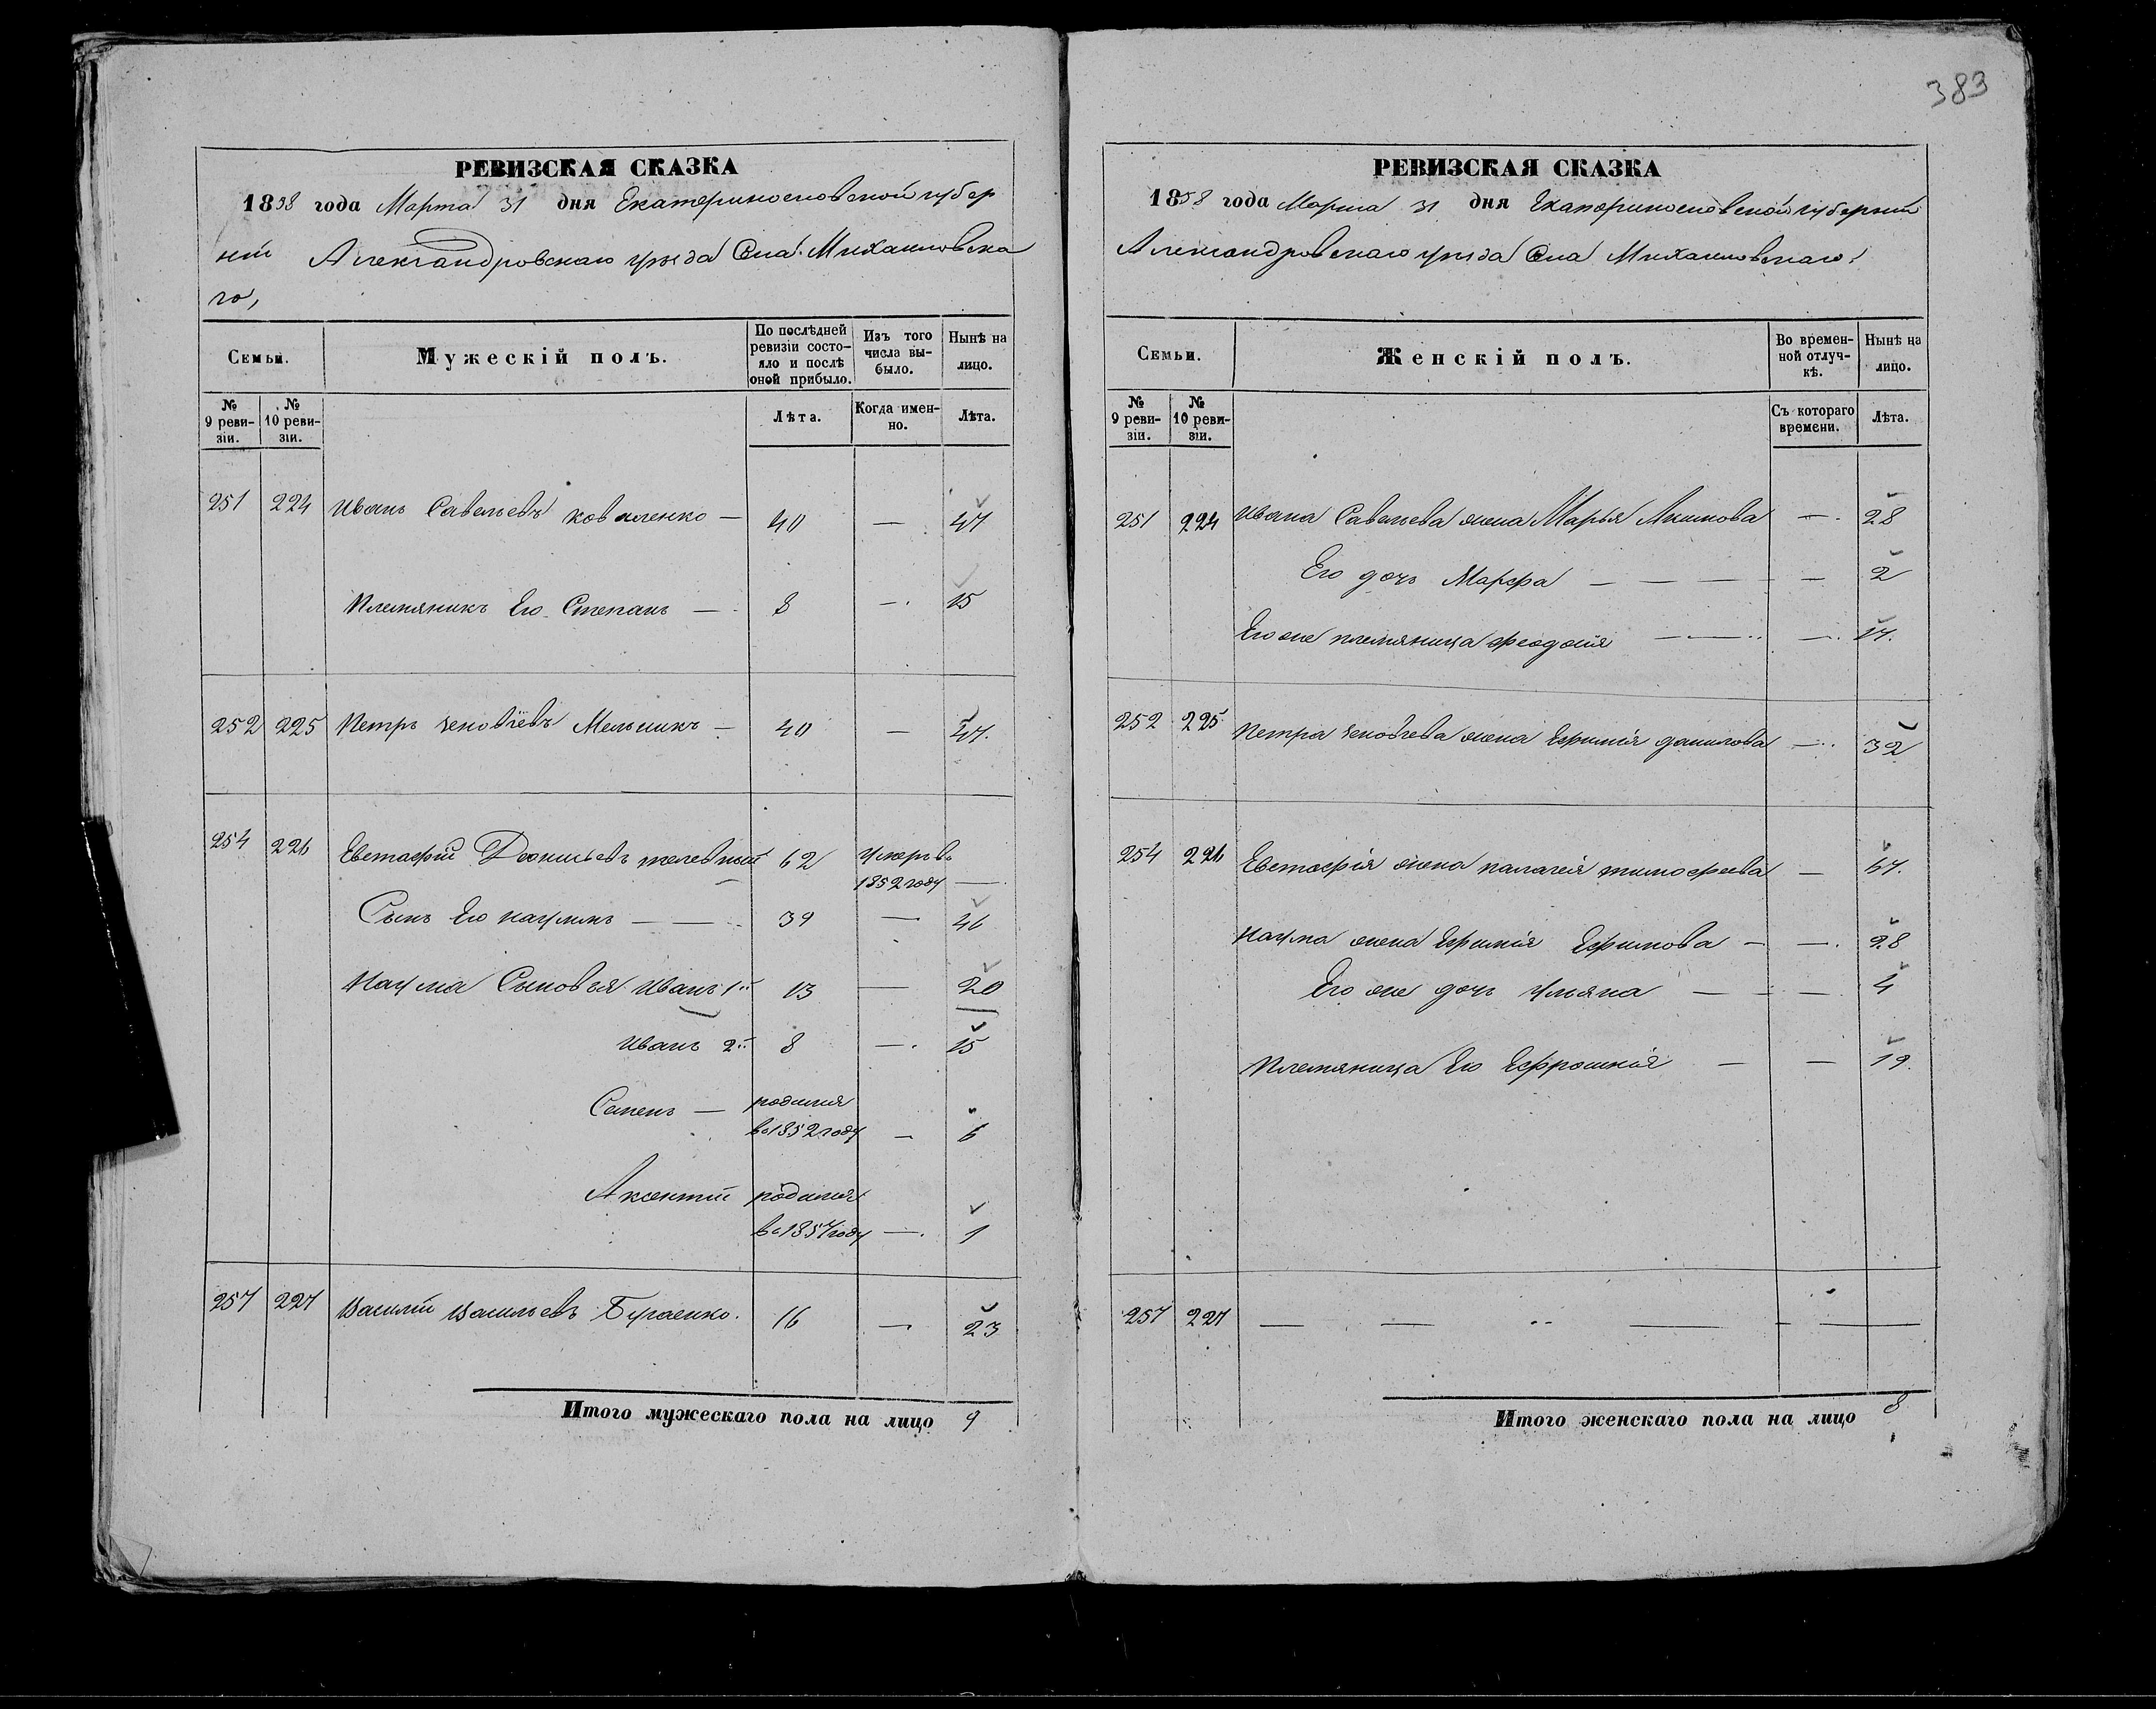 383
РЕВИЗСКАЯ СКАЗКА
1858 года Марта 31 дня Екатеринославской губер
нiи Александровскаго уѣзда Села Михайловска
го,
Семьи.
Мужескій полъ.
По послѣдней ревизіи состояло и послѣ оной прибыло.
Изъ того числа выбыло.
Нынѣ на лицо.
№ 9 ревизіи.
№ 10 ревизіи.
Лѣта.
Когда именно.
Лѣта.
251 224 Иванъ Савельевъ Коваленко — 40 — 47
Племяникъ Его Степанъ — 8 — 15
252 225 Петръ Зеновіевъ Мельникъ — 40 — 47.
254 226 Евстафій 62 умеръ въ 1852 году —
Сынъ Его Наумъ — — 39 — 46
Наума Сыновья Иванъ 1й 13 — 20
Иванъ 2й 8 — 15
Семенъ — родился въ 1852 году — 6
Аксентій родился въ 1857 году — 1
257 227 Василій Васильевъ Бугаенко. 16 — 23
Итого мужескаго пола на лицо 9
РЕВИЗСКАЯ СКАЗКА
1858 года Марта 31 дня Екатеринославской губерніи
Александровскаго уѣзда Села Михайловскаго.
Семьи.
Женскій полъ.
Во временной отлучкѣ.
Нынѣ на лицо.
№ 9 ревизіи.
№ 10 ревизіи.
Съ котораго времени.
Лѣта.
251 224 Ивана Савельева жена Марья — 28
Его дочь Марфа — — — — 2
Его же племяница Феодосія — — — 17.
252 225 Петра Зеновіева жена Ефимія Данилова — 32
254 226 Евстафія жена Палагея Тимофеева — 67.
Наума жена Ефимія Ефимова — — 28
Его же дочь Ульяна — — — 4
Племяница Его Ефросинія — — 19.
257 227 — — — — —
Итого женскаго пола на лицо 8